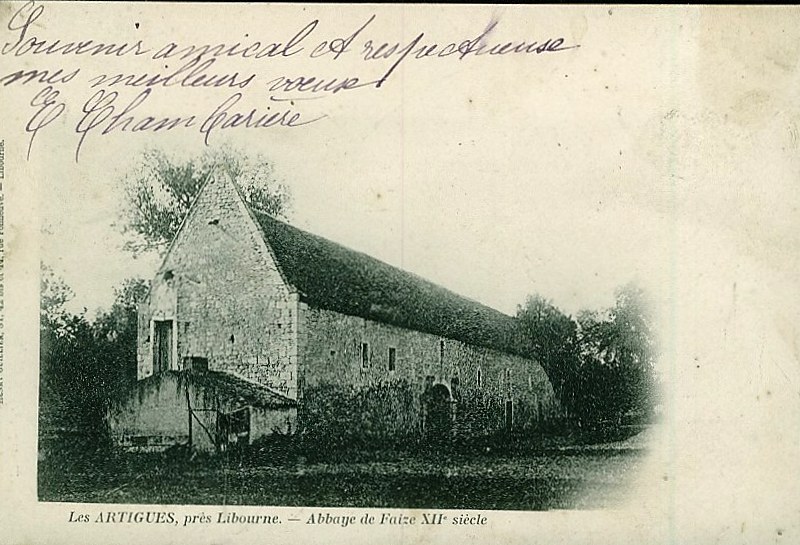 Souvenir amical et respectueuse
mes meilleurs voeux
E Chambarière
Les ARTIGUES, près Libourne. — Abbaye de Faize XIIe siècle